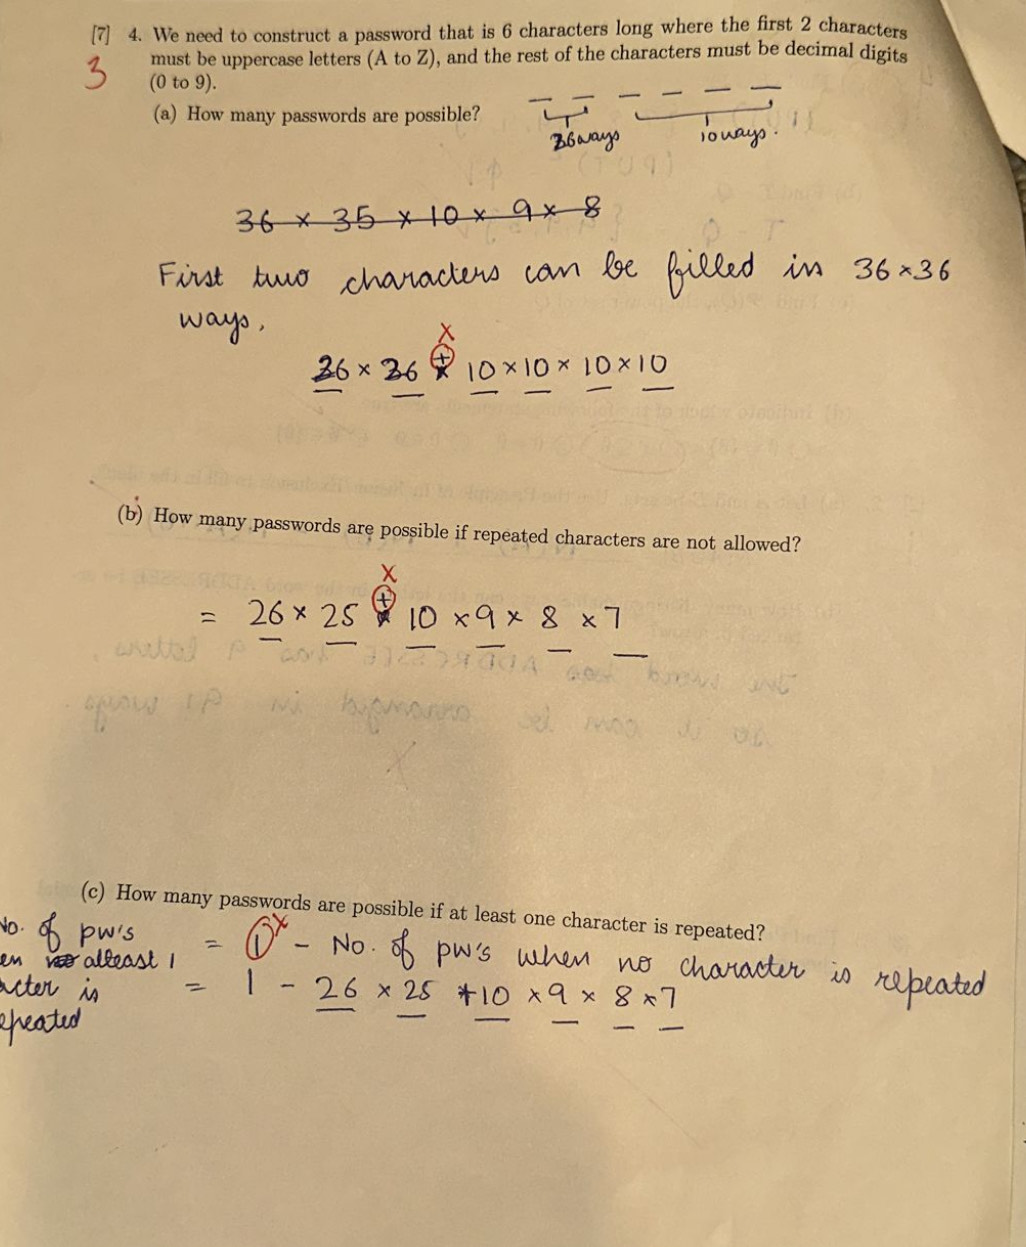 [7] 4. We need to construct a password that is 6 characters long where the first 2 characters
3
must be uppercase letters (A to Z), and the rest of the characters must be decimal digits
(0 to 9).
(a) How many passwords are possible?
36ways 10ways.
36 × 35 × 10 × 9 × 8
First two characters can be filled in 36×36
ways.
X
26 × 26 + 10 × 10 × 10 × 10
(b) How many passwords are possible if repeated characters are not allowed?
X
= 26 × 25 + 10 × 9 × 8 × 7
(c) How many passwords are possible if at least one character is repeated?
No. of pw's = 1 x - No. of pw's when no character is repeated
en atleast 1
acter is = 1 - 26 × 25 + 10 × 9 × 8 × 7
epeated